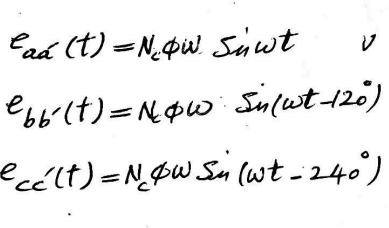 eaa′(t) = Ncφω Sinωt V
ebb′(t) = Ncφω Sin(ωt-120°)
ecc′(t) = Ncφω Sin(ωt-240°)